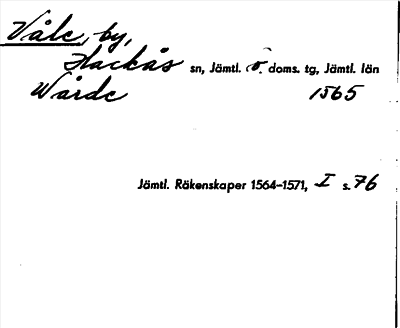 Våle, by,
Hackås sn, Jämtl. ö. doms. tg, Jämtl. län
Wårde 1565
Jämtl. Räkenskaper 1564–1571, I s. 76